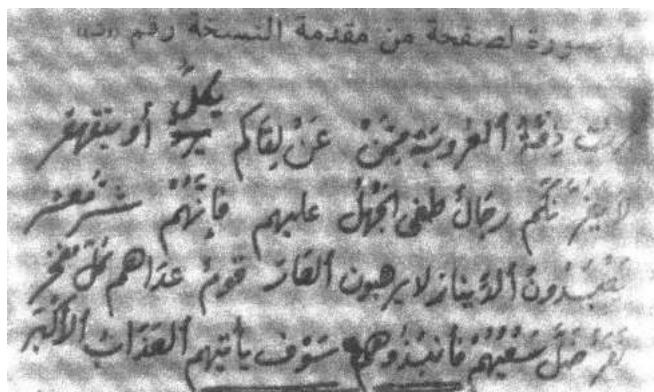 صورة لصفحة من مقدمة النسخة رقم «د»
ذمة العروبة ممن عن لقاكم يكل أو يتقهقر
رجال طغى الجهل عليهم فإنهم شر معشر
الدينار لا يرهبون العار قوم عداهم كل مفخر
ضل سعيهم فانبذوهم سوف يأتيهم العذاب الأكبر